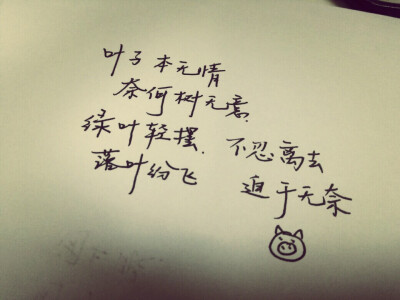 叶子本无情
奈何树无意.
绿叶轻摆.
落叶纷飞
不忍离去
迫于无奈